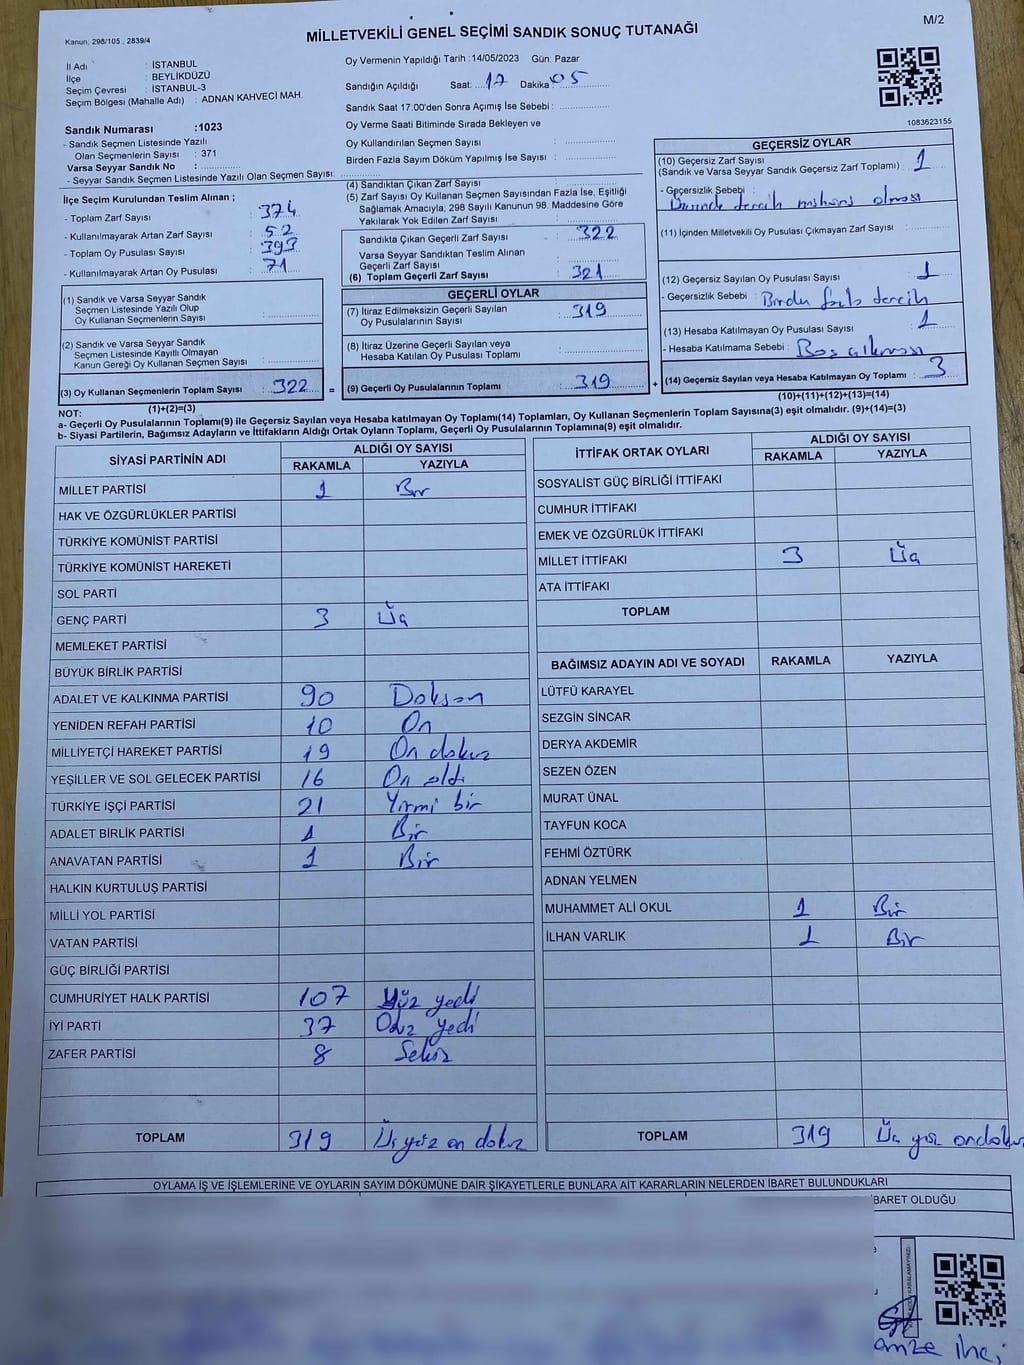 M/2
Kanun: 298/105 , 2839/4
MİLLETVEKİLİ GENEL SEÇİMİ SANDIK SONUÇ TUTANAĞI
İl Adı : İSTANBUL
İlçe : BEYLİKDÜZÜ
Seçim Çevresi : İSTANBUL-3
Seçim Bölgesi (Mahalle Adı) : ADNAN KAHVECİ MAH.
Sandık Numarası :1023
- Sandık Seçmen Listesinde Yazılı
Olan Seçmenlerin Sayısı : 371
Varsa Seyyar Sandık No :
- Seyyar Sandık Seçmen Listesinde Yazılı Olan Seçmen Sayısı:
Oy Vermenin Yapıldığı Tarih :14/05/2023 Gün: Pazar
Sandığın Açıldığı Saat: 17 Dakika 05
Sandık Saat 17:00'den Sonra Açımış İse Sebebi :
Oy Verme Saati Bitiminde Sırada Bekleyen ve
Oy Kullandırılan Seçmen Sayısı :
Birden Fazla Sayım Döküm Yapılmış İse Sayısı :
1083623155
İlçe Seçim Kurulundan Teslim Alınan ;
- Toplam Zarf Sayısı : 374
- Kullanılmayarak Artan Zarf Sayısı : 52
- Toplam Oy Pusulası Sayısı : 393
- Kullanılmayarak Artan Oy Pusulası : 71
(1) Sandık ve Varsa Seyyar Sandık
Seçmen Listesinde Yazılı Olup
Oy Kullanan Seçmenlerin Sayısı :
(2) Sandık ve Varsa Seyyar Sandık
Seçmen Listesinde Kayıtlı Olmayan
Kanun Gereği Oy Kullanan Seçmen Sayısı :
(3) Oy Kullanan Seçmenlerin Toplam Sayısı : 322 =
(1)+(2)=(3)
(4) Sandıktan Çıkan Zarf Sayısı :
(5) Zarf Sayısı Oy Kullanan Seçmen Sayısından Fazla İse, Eşitliği
Sağlamak Amacıyla; 298 Sayılı Kanunun 98. Maddesine Göre
Yakılarak Yok Edilen Zarf Sayısı :
Sandıkta Çıkan Geçerli Zarf Sayısı : 322
Varsa Seyyar Sandıktan Teslim Alınan
Geçerli Zarf Sayısı :
(6) Toplam Geçerli Zarf Sayısı : 321
GEÇERLİ OYLAR
(7) İtiraz Edilmeksizin Geçerli Sayılan
Oy Pusulalarının Sayısı : 319
(8) İtiraz Üzerine Geçerli Sayılan veya
Hesaba Katılan Oy Pusulası Toplamı :
(9) Geçerli Oy Pusulalarının Toplamı : 319 +
GEÇERSİZ OYLAR
(10) Geçersiz Zarf Sayısı
(Sandık ve Varsa Seyyar Sandık Geçersiz Zarf Toplamı) : 1
- Geçersizlik Sebebi :
Üzerinde tercih mührü olması
(11) İçinden Milletvekili Oy Pusulası Çıkmayan Zarf Sayısı :
(12) Geçersiz Sayılan Oy Pusulası Sayısı : 1
- Geçersizlik Sebebi : Birden fazla tercih
(13) Hesaba Katılmayan Oy Pusulası Sayısı : 1
- Hesaba Katılmama Sebebi : Boş çıkması
(14) Geçersiz Sayılan veya Hesaba Katılmayan Oy Toplamı : 3
(10)+(11)+(12)+(13)=(14)
NOT:
a- Geçerli Oy Pusulalarının Toplamı(9) ile Geçersiz Sayılan veya Hesaba katılmayan Oy Toplamı(14) Toplamları, Oy Kullanan Seçmenlerin Toplam Sayısına(3) eşit olmalıdır. (9)+(14)=(3)
b- Siyasi Partilerin, Bağımsız Adayların ve İttifakların Aldığı Ortak Oyların Toplamı, Geçerli Oy Pusulalarının Toplamına(9) eşit olmalıdır.
SİYASİ PARTİNİN ADI
ALDIĞI OY SAYISI
RAKAMLA YAZIYLA
MİLLET PARTİSİ 1 Bir
HAK VE ÖZGÜRLÜKLER PARTİSİ
TÜRKİYE KOMÜNİST PARTİSİ
TÜRKİYE KOMÜNİST HAREKETİ
SOL PARTİ
GENÇ PARTİ 3 Üç
MEMLEKET PARTİSİ
BÜYÜK BİRLİK PARTİSİ
ADALET VE KALKINMA PARTİSİ 90 Doksan
YENİDEN REFAH PARTİSİ 10 On
MİLLİYETÇİ HAREKET PARTİSİ 19 On dokuz
YEŞİLLER VE SOL GELECEK PARTİSİ 16 On altı
TÜRKİYE İŞÇİ PARTİSİ 21 Yirmi bir
ADALET BİRLİK PARTİSİ 1 Bir
ANAVATAN PARTİSİ 1 Bir
HALKIN KURTULUŞ PARTİSİ
MİLLİ YOL PARTİSİ
VATAN PARTİSİ
GÜÇ BİRLİĞİ PARTİSİ
CUMHURİYET HALK PARTİSİ 107 Yüz yedi
İYİ PARTİ 37 Otuz yedi
ZAFER PARTİSİ 8 Sekiz
TOPLAM 319 Üç yüz on dokuz
İTTİFAK ORTAK OYLARI
ALDIĞI OY SAYISI
RAKAMLA YAZIYLA
SOSYALİST GÜÇ BİRLİĞİ İTTİFAKI
CUMHUR İTTİFAKI
EMEK VE ÖZGÜRLÜK İTTİFAKI
MİLLET İTTİFAKI 3 Üç
ATA İTTİFAKI
TOPLAM
BAĞIMSIZ ADAYIN ADI VE SOYADI RAKAMLA YAZIYLA
LÜTFÜ KARAYEL
SEZGİN SİNCAR
DERYA AKDEMİR
SEZEN ÖZEN
MURAT ÜNAL
TAYFUN KOCA
FEHMİ ÖZTÜRK
ADNAN YELMEN
MUHAMMET ALİ OKUL 1 Bir
İLHAN VARLIK 1 Bir
TOPLAM 319 Üç yüz ondokuz
OYLAMA İŞ VE İŞLEMLERİNE VE OYLARIN SAYIM DÖKÜMÜNE DAİR ŞİKAYETLERLE BUNLARA AİT KARARLARIN NELERDEN İBARET BULUNDUKLARI
İBARET OLDUĞU